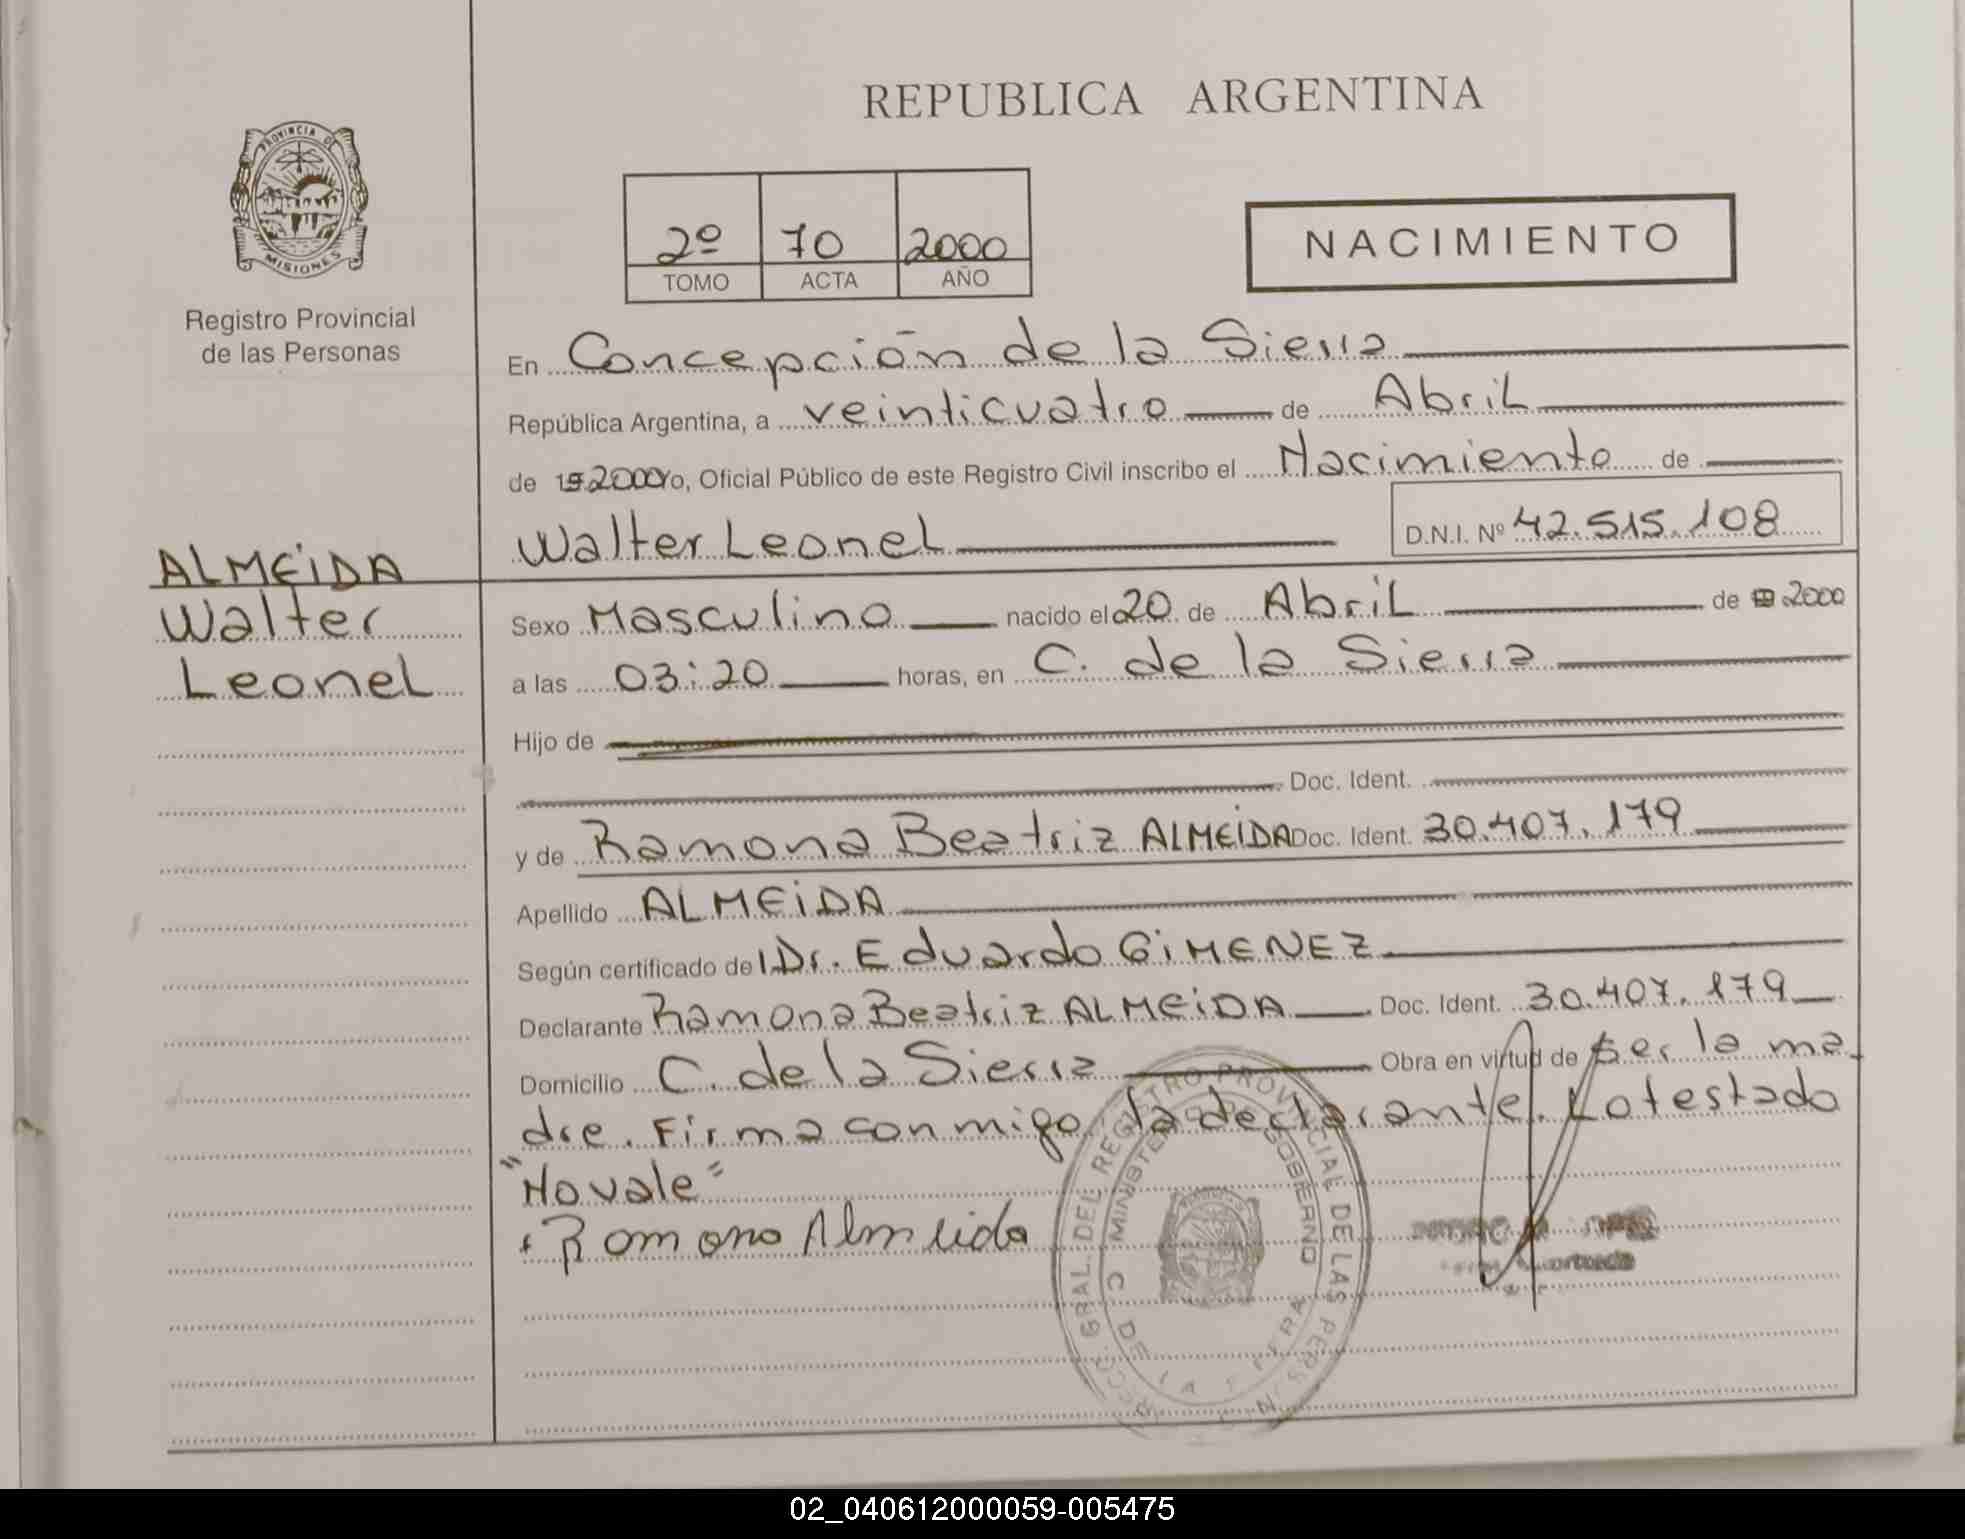 REPUBLICA ARGENTINA
PROVINCIA DE
MISIONES
Registro Provincial
de las Personas
2º 70 2000
TOMO ACTA AÑO
NACIMIENTO
En Concepción de la Sierra
República Argentina, a veinticuatro de Abril
de 19 2000 Yo, Oficial Público de este Registro Civil inscribo el Nacimiento de
Walter Leonel D.N.I. Nº 42.515.108
ALMEIDA
Walter
Leonel
Sexo Masculino nacido el 20 de Abril de 2000
a las 03:20 horas, en C. de la Sierra
Hijo de
Doc. Ident.
y de Ramona Beatriz ALMEIDA Doc. Ident. 30.407.179
Apellido ALMEIDA
Según certificado de l Dr. Eduardo GIMENEZ
Declarante Ramona Beatriz ALMEIDA Doc. Ident. 30.407.179
Domicilio C. de la Sierra Obra en virtud de ser la ma
dre. Firma conmigo la declarante. Lo testado
"No vale"
Ramona Almeida
GRAL. DEL REGISTRO PROVINCIAL DE LAS PERS
GOBIERNO
C DE LA
02_040612000059-005475